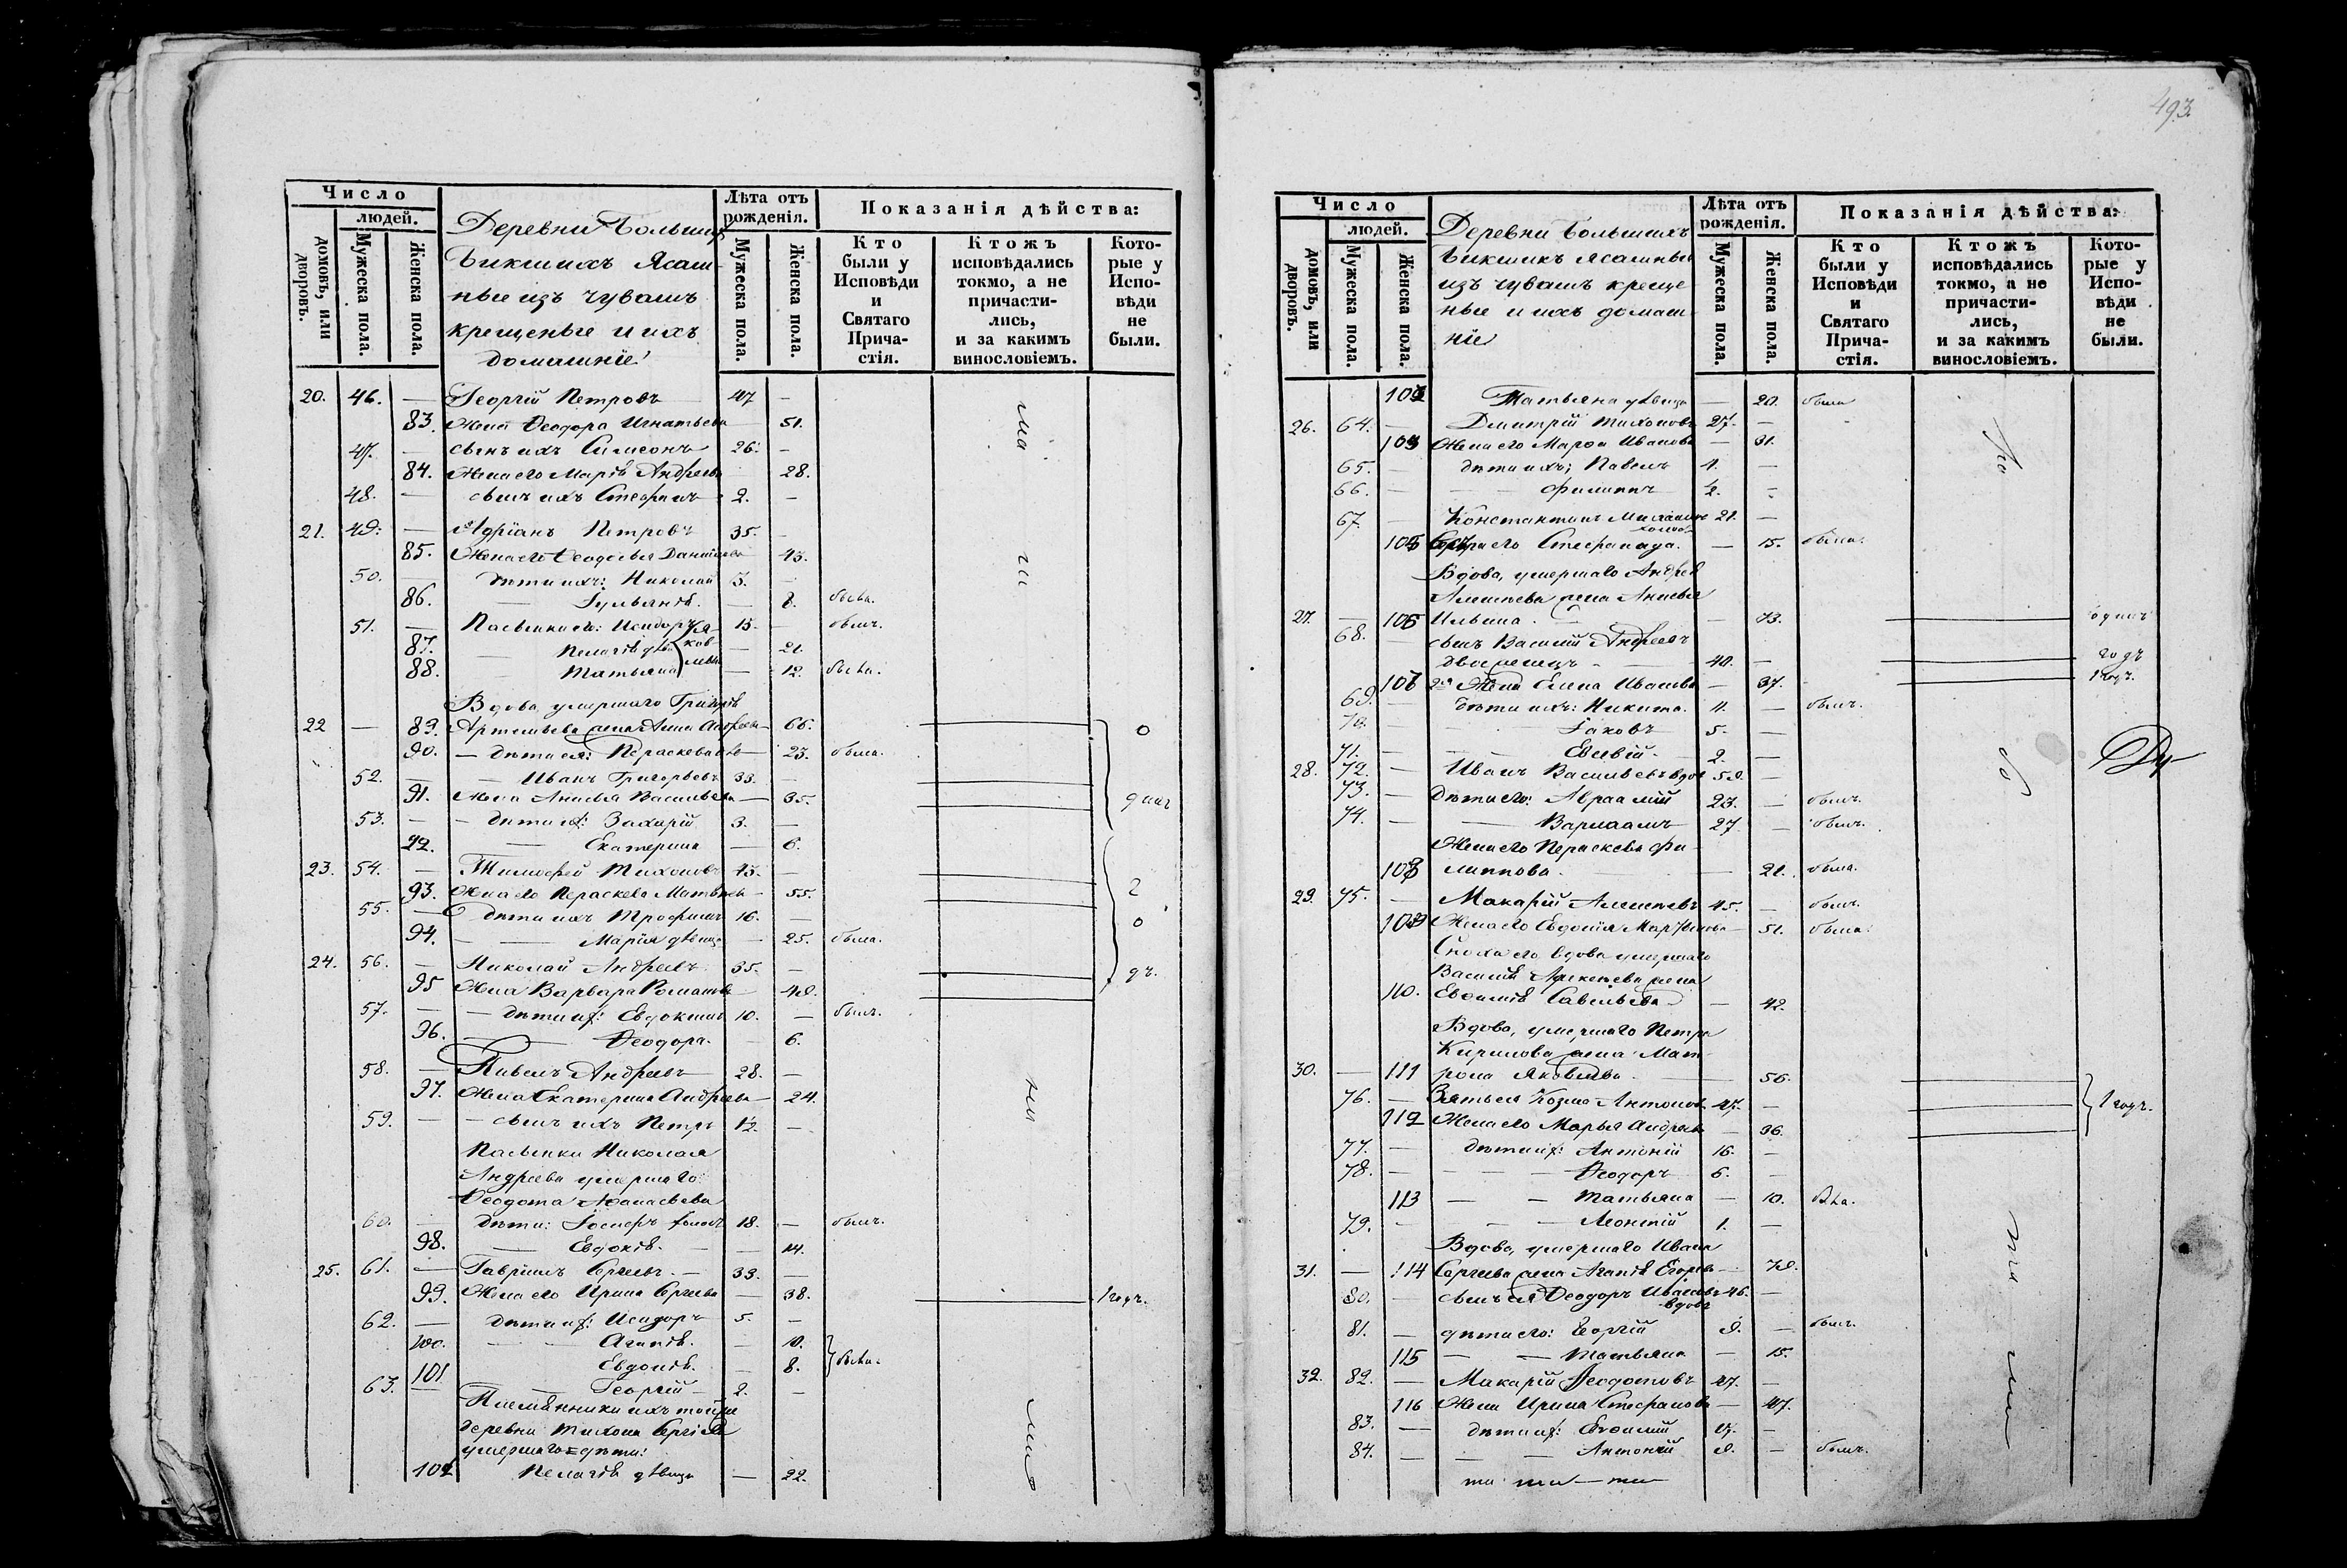 493.
Число
людей.
домовъ, или дворовъ.
Мужеска пола.
Женска пола.
Деревни Большихъ
Бикшихъ Ясаш-
ные изъ чувашъ
крещеные и ихъ
домашніе
Лѣта отъ рожденія.
Мужеска пола.
Женска пола.
Показанія дѣйства:
Кто были у Исповѣди и Святаго Прича-стія.
Ктожъ исповѣдались токмо, а не причасти-лись, и за какимъ винословіемъ.
Кото-рые у Испо-вѣди не были.
20. 46. — Георгій Петровъ 47 —
83. Жена Ѳеодора Игнатьева 51.
47. — сынъ ихъ Симеонъ 26. —
84. Жена его Марія Андреева 28.
48. — сынъ ихъ Стефанъ 2. —
21. 49. — Адріанъ Петровъ 35. —
85. Жена его Ѳеодосья Данилова 43.
50. — дѣти ихъ: Николай 3. —
86. — Іульянія. — 8. была.
51. — Пасынки его: Исидоръ 15. — былъ.
87. — Пелагія — 21.
88. Татьяна — 12. была.
Вдова, умершаго Григорія
22 — 89. Артемьева жена Анна — 66.
90. — дѣти ея: Параскева — 23. была.
52. — — Иванъ Григорьевъ 33. —
91. Жена Анисья Васильева — 35.
53. — — дѣти их: Захарій 3. —
92. — Екатерина — 6.
23. 54. — Тимофей Тихоновъ 45. —
93. Жена его Параскева Матвѣева — 55.
55. — дѣти ихъ Трофимъ 16. —
94. — — Марія дѣвица — 25. была.
24. 56. — Николай Андреевъ 35. —
95 Жена Варвара Романова — 40.
57. — — дѣти их: Евдокимъ 10. — былъ.
96. — Ѳеодора. — 6.
58. — Павелъ Андреевъ 28. —
97. Жена Екатерина Андреева — 24.
59. — — сынъ ихъ Петръ 1/2 —
Пасынки Николая
Андреева умершаго
Ѳеодота Аѳанасьева
60. — дѣти: Іосифъ 18. — былъ.
98. — Евдокія. — — 14.
25. 61. — Гавріилъ Сергеевъ. — 33. —
99. Жена его Ирина Сергеева — 38. 1 годъ.
62. — дѣти их: Исидоръ 5. —
100. — — Агапія. — 10.
101 Евдокія. — 8. была.
63. — — Георгій — 2. —
Племянники ихъ тойже
деревни Тихона Сергіева
умершаго дѣти:
102 Пелагія дѣвица — 22.
Число
людей.
домовъ, или дворовъ.
Мужеска пола.
Женска пола.
Деревни Большихъ
Бикшихъ Ясашные
изъ чувашъ креще
ные и ихъ домаш
ніе
Лѣта отъ рожденія.
Мужеска пола.
Женска пола.
Показанія дѣйства:
Кто были у Исповѣди и Святаго Прича-стія.
Ктожъ исповѣдались токмо, а не причасти-лись, и за какимъ винословіемъ.
Кото-рые у Испо-вѣди не были.
Татьяна дѣвица — 20. была
26. 64. — Дмитрій Тихоновъ 27. —
Жена его Марѳа Иванова — 31.
65. — дѣти ихъ; Павелъ 4. —
66. — — — Филиппъ 1/2. —
67. — Константинъ 21. —
сестра его Стефанида. — 15. была.
Вдова, умершаго Андрея
Алексѣева жена Анисья
27. — 106 Ильина. — 73. одинъ
68. сынъ Василій Андреевъ
двоеженецъ — 40. — годъ
2я Жена Елена Иванова — 37. 1 годъ.
69. — дѣти ихъ: Никита. 11. — былъ.
70. — Іаковъ 5. —
71. — — — 2. —
28. 72. — Иванъ Васильевъ вдов 50. —
73. — дѣти его: Авраамій 23. — былъ.
74. — — Варлаамъ 27. — былъ.
Жена его Параскева Фи
108 липпова. — 21. была.
29. 75. — Макарій Алексѣевъ 45. — былъ.
109 Жена его Евдокія — 51. была.
Сноха его вдова умершаго
Василія жена
110. Евѳимія Савельева — 42.
Вдова, умершаго Петра
Кирилова жена Мат
30. — 111 рона Яковлева. — 56.
76. — Зять ея Козма Антоновъ 47. — 1 годъ.
112 Жена его Марья Андреева — 36.
77. — дѣти их: Антоній 16. —
78. — — — Ѳеодоръ 6. —
113 — — Татьяна — 10. была.
79. — — — Леонтій 1. —
Вдова, умершаго Ивана
31. — 114 Сергеева жена Агапія Егорова — 70.
80. — сынъ ея Ѳеодоръ Ивановъ 46. —
вдовъ
81. — дѣти его: Георгій 9. — былъ.
115 — — Татьяна — 15.
32. 82. — Макарій Ѳедотовъ 47. —
116 Жена Ирина Стефанова — 47.
83. — дѣти их: Евѳимій 17. —
84. — — — Антоній 9. — былъ.